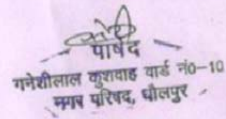 पार्षद
गनेशीलाल कुशवाह वार्ड नं०-10
नगर परिषद, धौलपुर